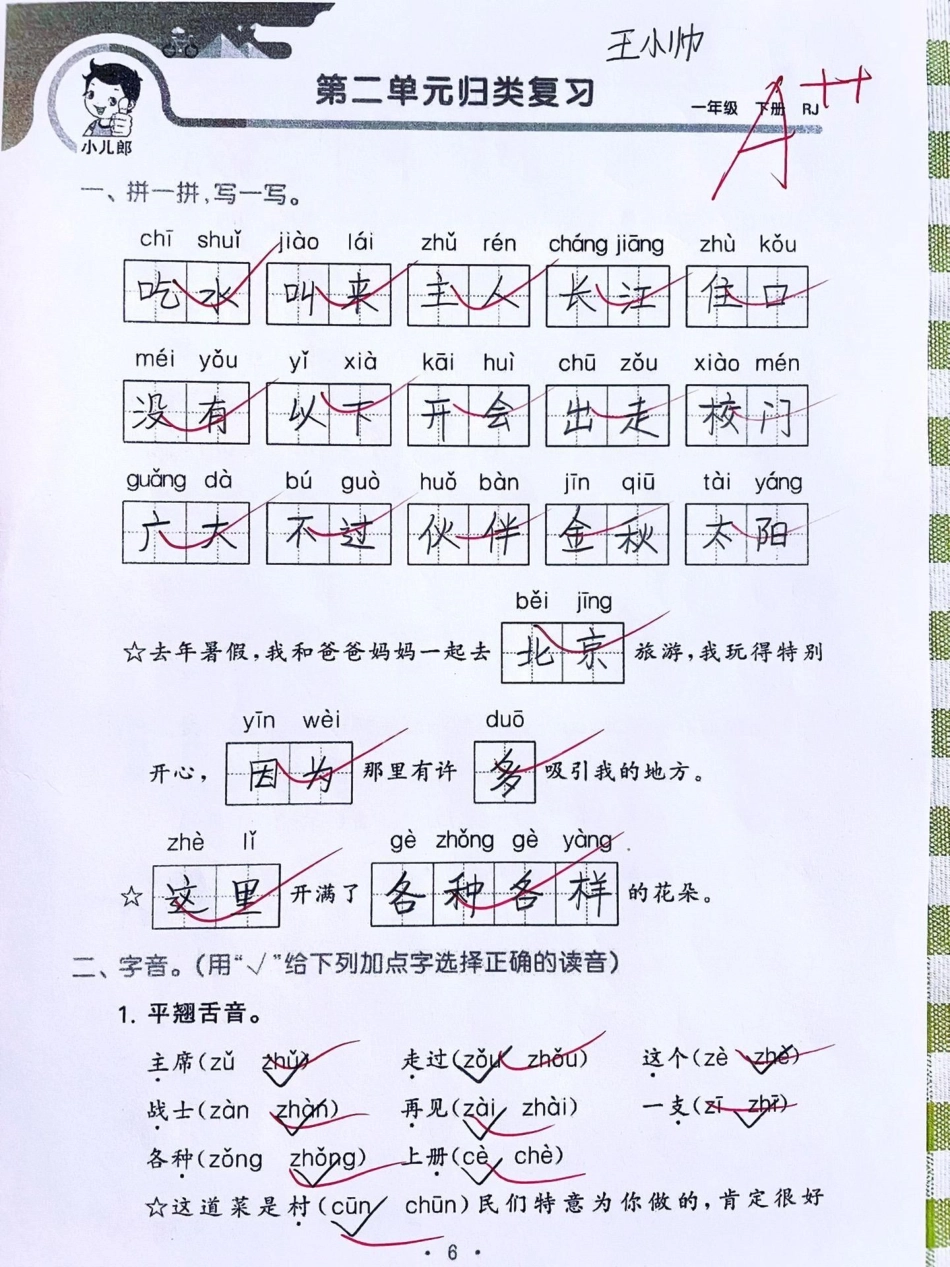 王小帅
第二单元归类复习
一年级 下册 RJ
A++
小儿郎
一、拼一拼,写一写。
chī shuǐ jiào lái zhǔ rén cháng jiāng zhù kǒu
吃水 叫来 主人 长江 住口
méi yǒu yǐ xià kāi huì chū zǒu xiào mén
没有 以下 开会 出走 校门
guǎng dà bú guò huǒ bàn jīn qiū tài yáng
广大 不过 伙伴 金秋 太阳
běi jīng
☆去年暑假,我和爸爸妈妈一起去 北京 旅游,我玩得特别
yīn wèi duō
开心, 因为 那里有许 多 吸引我的地方。
zhè lǐ gè zhǒng gè yàng
☆ 这里 开满了 各种各样 的花朵。
二、字音。(用“√”给下列加点字选择正确的读音)
1. 平翘舌音。
主席(zǔ zhǔ√) 走过(zǒu√ zhǒu) 这个(zè zhè√)
战士(zàn zhàn√) 再见(zài√ zhài) 一支(zī zhī√)
各种(zǒng zhǒng√) 上册(cè√ chè)
☆这道菜是村(cūn√ chūn)民们特意为你做的,肯定很好
· 6 ·